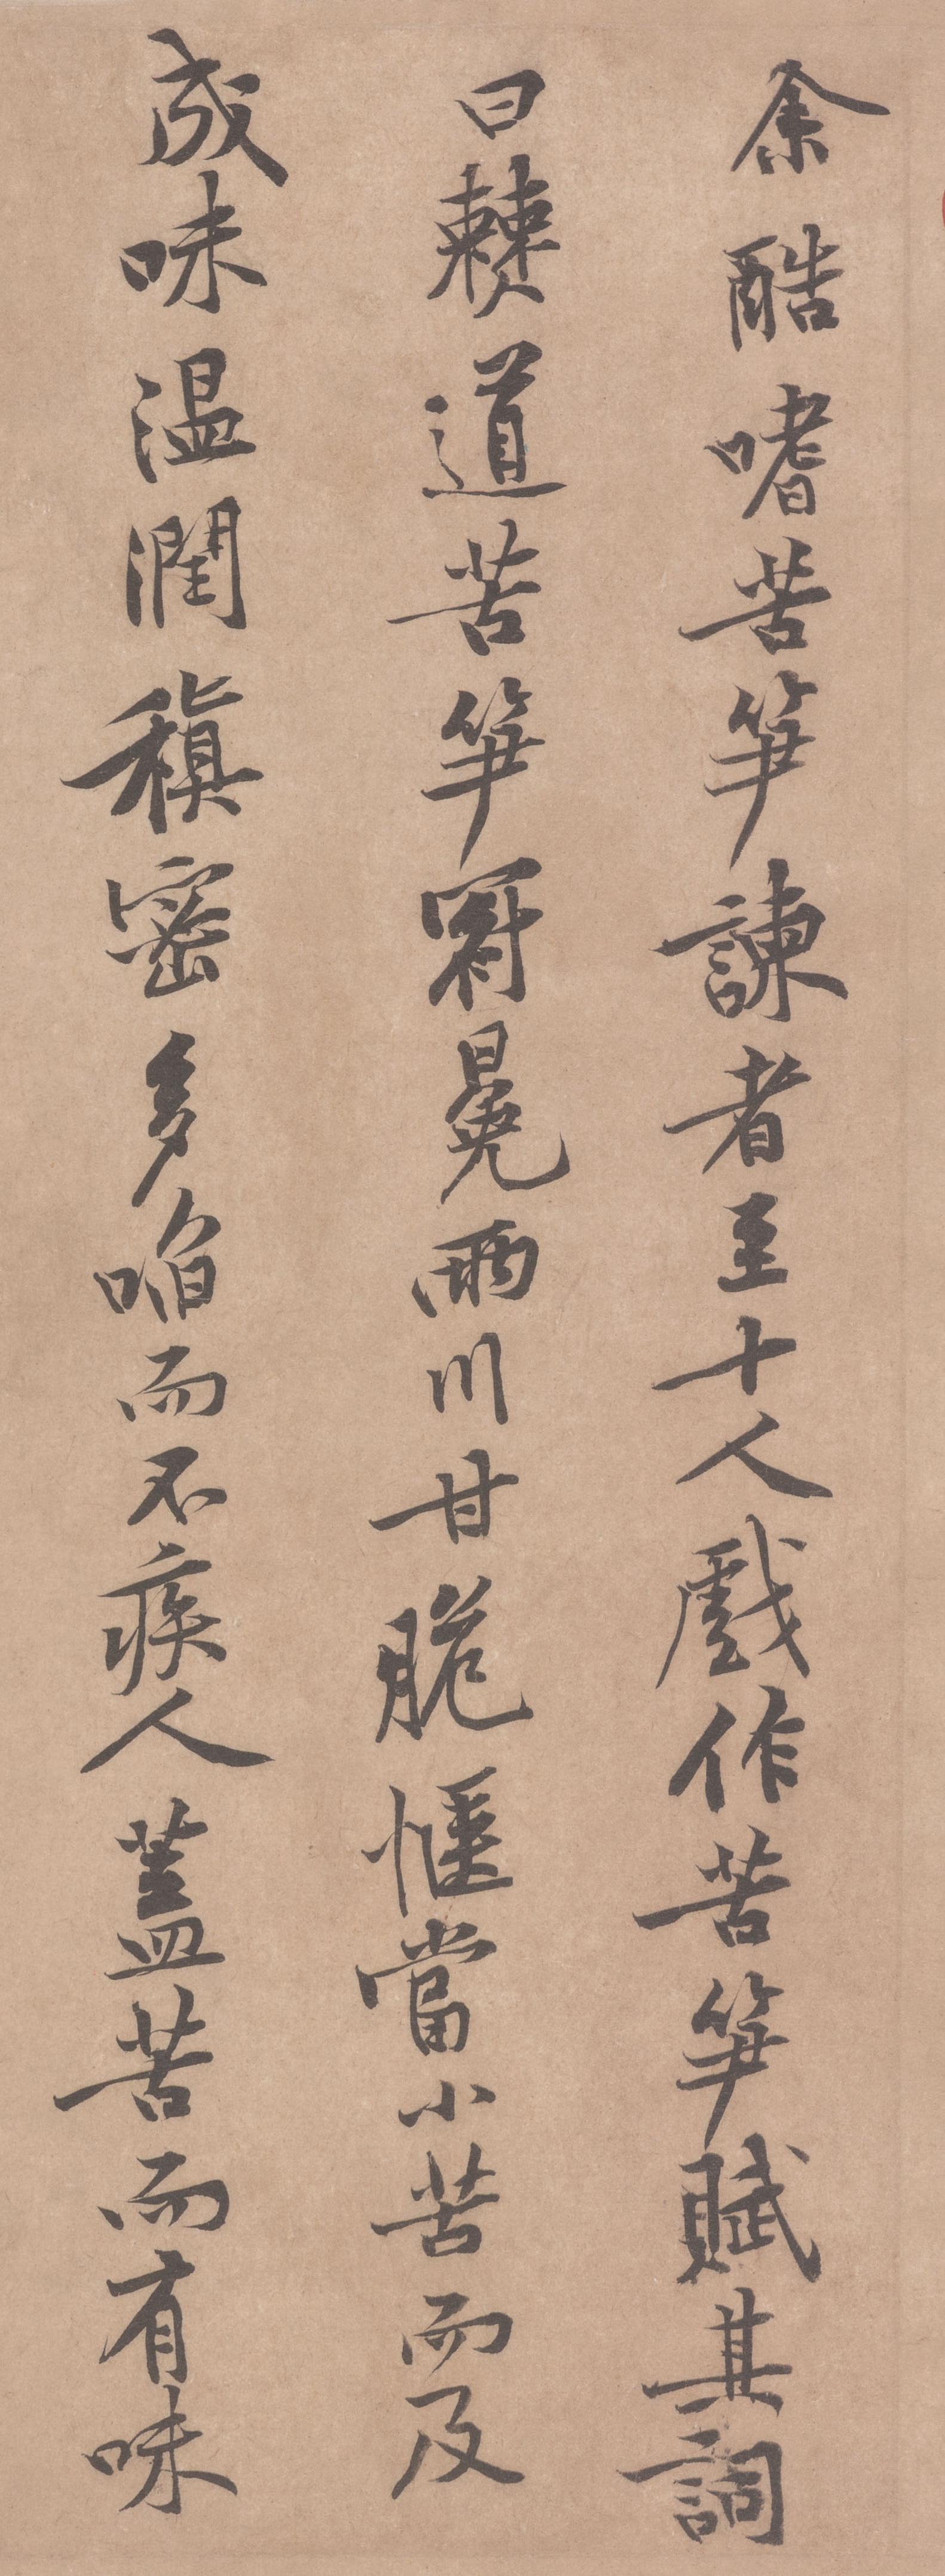 余酷嗜苦笋諫者至十人戲作苦笋賦其詞
曰僰道苦笋冠冕兩川甘脆愜當小苦而反
成味溫潤稹密多啗而不疾人蓋苦而有味